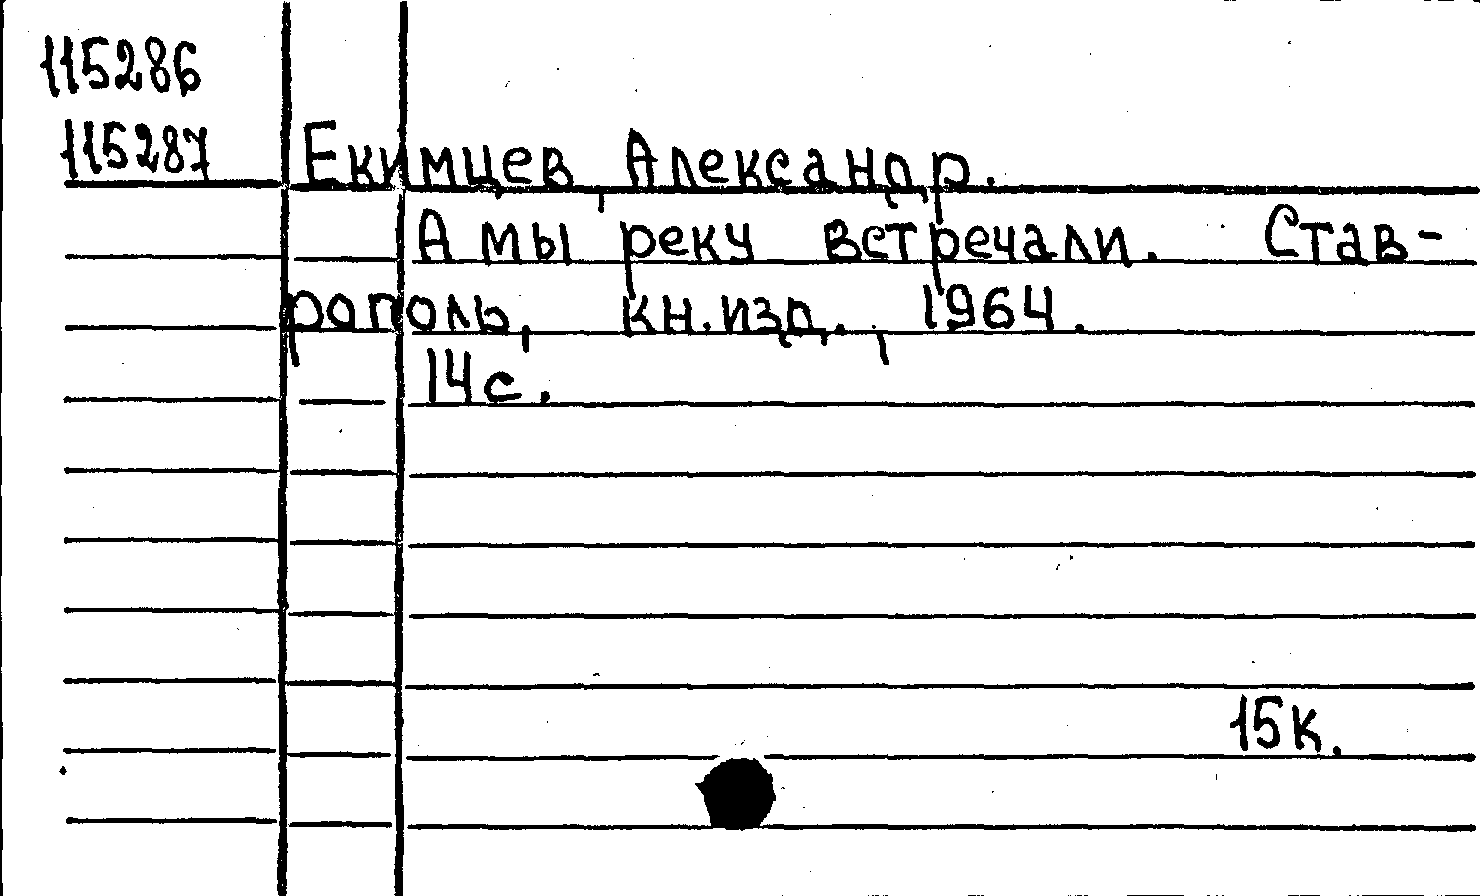 115286
115287 Екимцев, Александр.
А мы реку встречали. Став-
рополь, кн.изд., 1964.
14с.
15к.